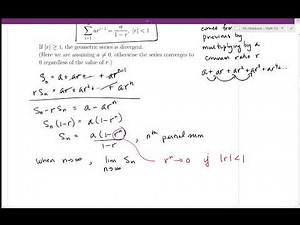 ∑ ar^{i-1} = a/(1 − r), |r| < 1
If |r| ≥ 1, the geometric series is divergent.
(Here we are assuming a ≠ 0, otherwise the series converges to
0 regardless of the value of r.)
comes for
previous by
multiplying by a
common ratio r
a + ar + ar² + ar³ + ar⁴ ...
Sₙ = a + ar + ... + arⁿ⁻¹
r Sₙ = ar + ar² + ... + arⁿ
Sₙ − r Sₙ = a − arⁿ
Sₙ (1−r) = a (1 − rⁿ)
Sₙ = a (1 − rⁿ) / (1−r), nᵗʰ partial sum
when n→∞, lim Sₙ n→∞ rⁿ → 0 if |r| < 1